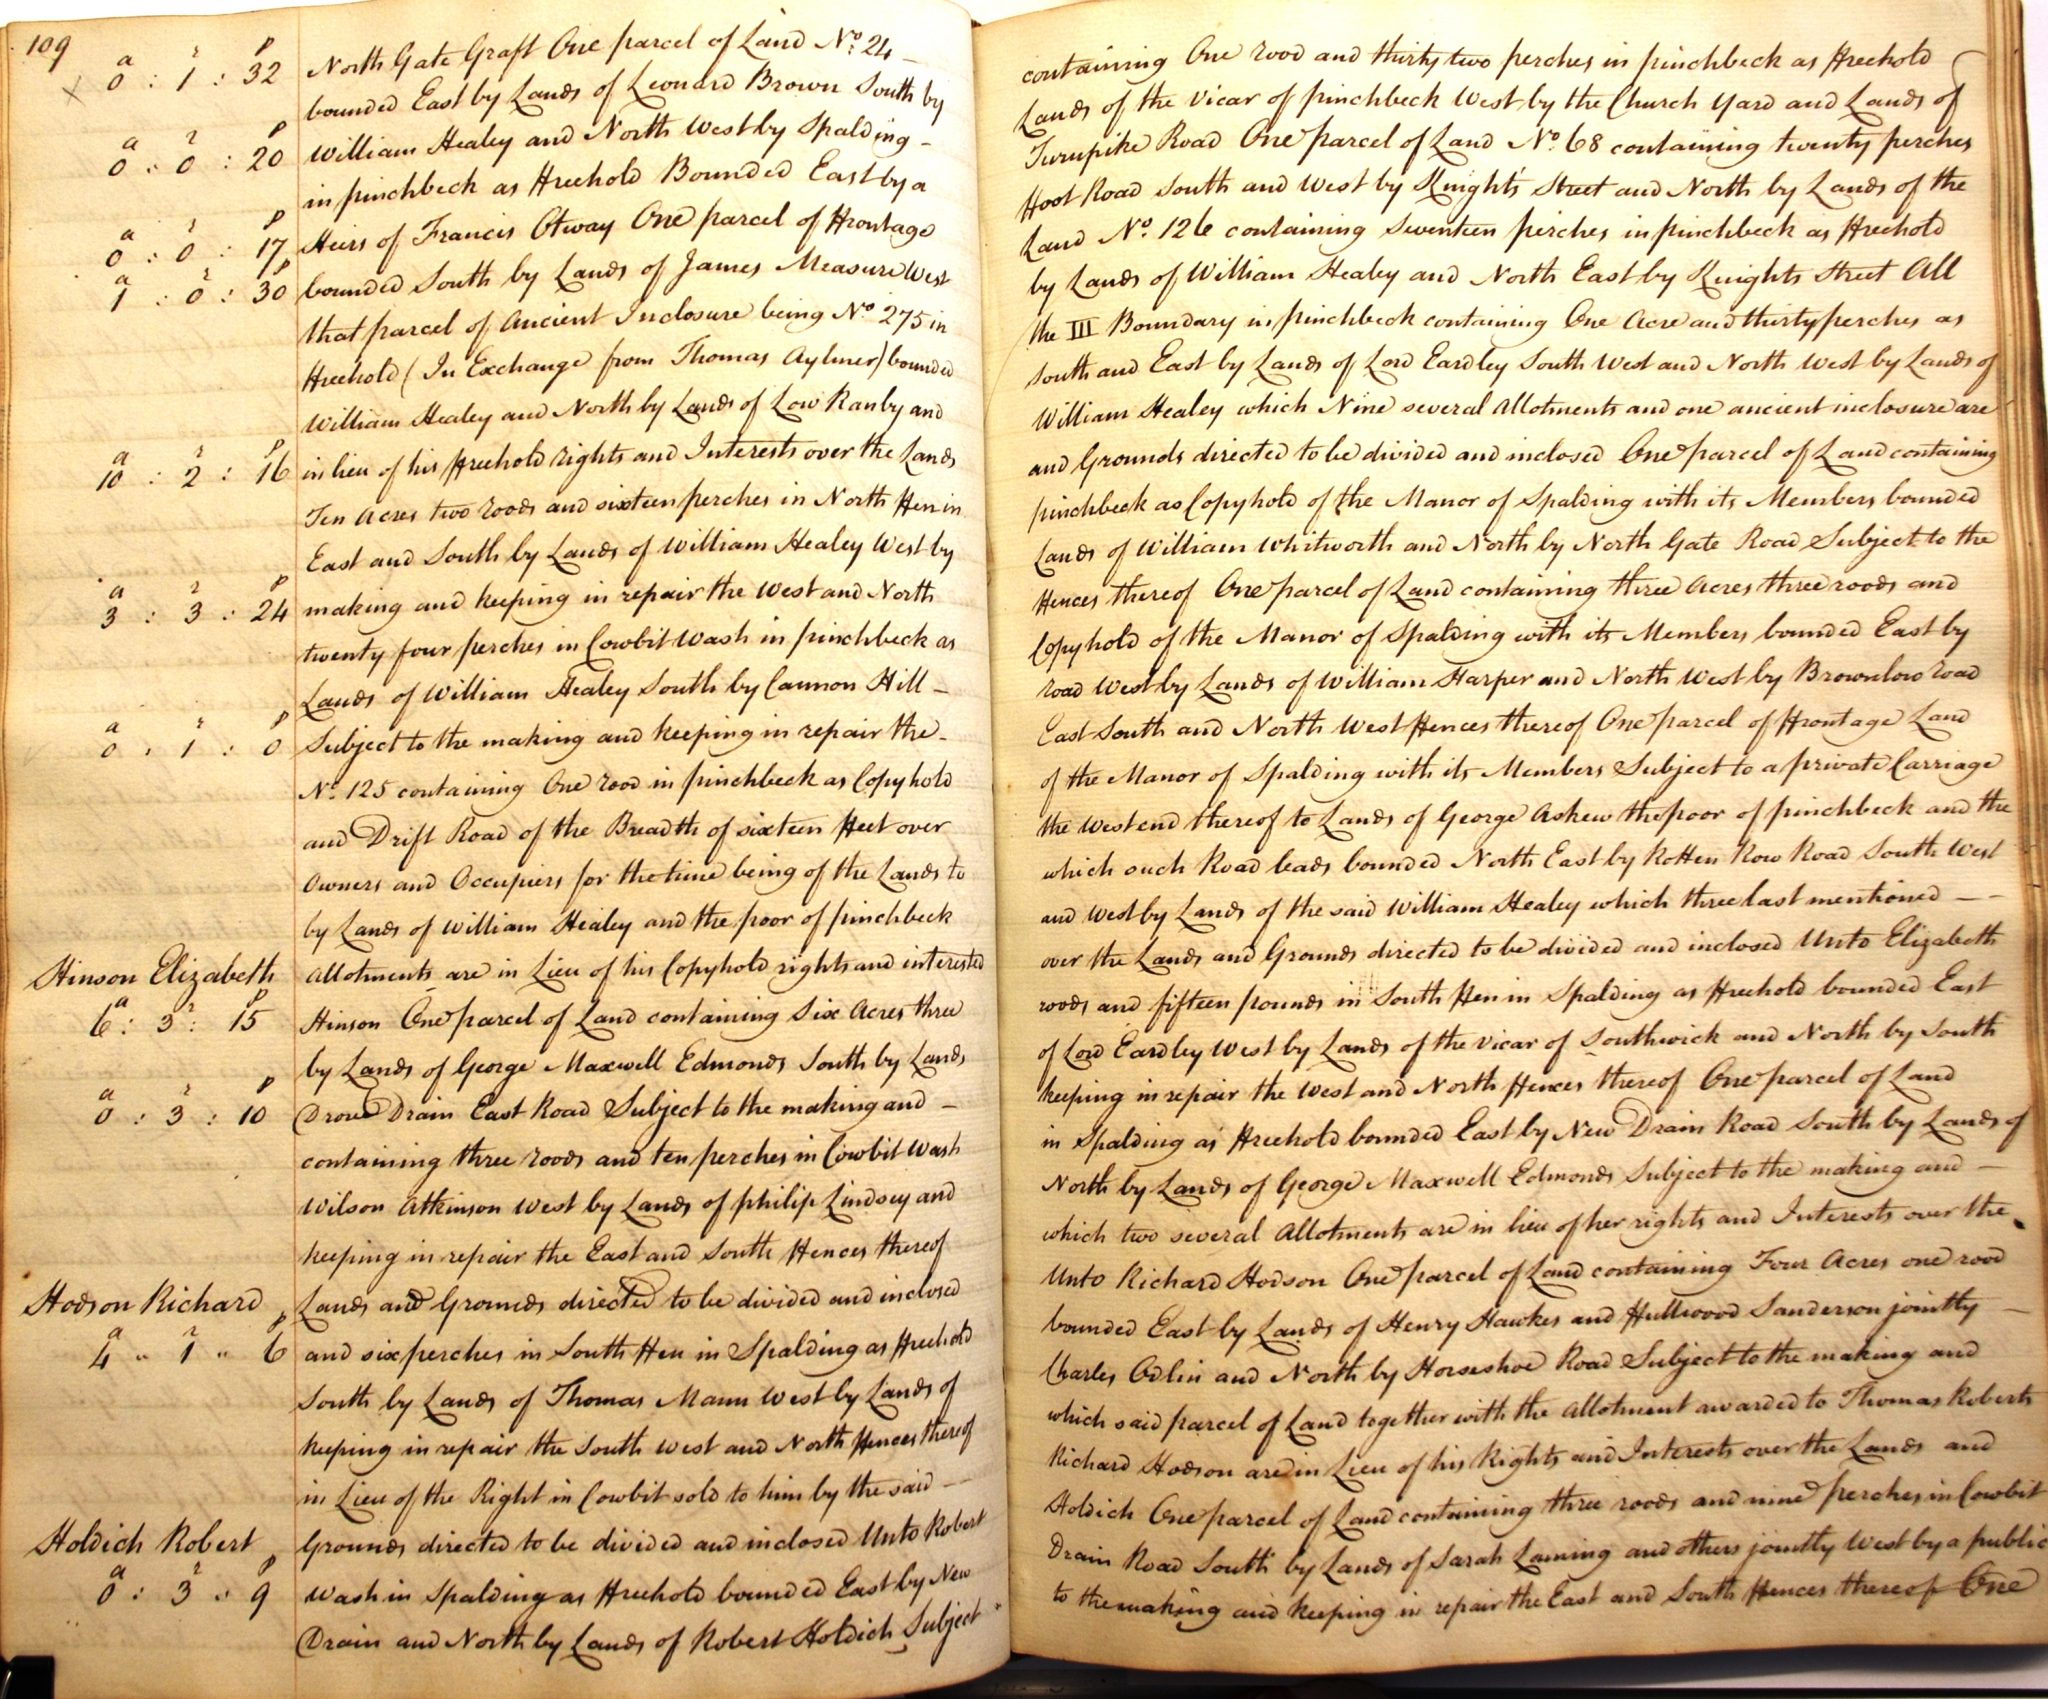 109
a r p
0 : 1 : 32 North Gate Graft One parcel of Land No. 24 – containing One rood and thirty two perches in pinchbeck as Freehold
bounded East by Lands of Leonard Brown South by Lands of the Vicar of pinchbeck West by the Church Yard and Lands of
a r p
0 : 0 : 20 William Healey and North West by Spalding – Turnpike Road One parcel of Land No. 68 containing twenty perches
in pinchbeck as Freehold Bounded East by a Foot Road South and West by Knights Street and North by Lands of the
a r p
0 : 0 : 17 Heirs of Francis Otway One parcel of Frontage Land No. 126 containing Seventeen perches in pinchbeck as Freehold
a r p
1 : 0 : 30 bounded South by Lands of James Measure West by Lands of William Healey and North East by Knights Street All
that parcel of Ancient Inclosure being No. 275 in the III Boundary in pinchbeck containing One Acre and thirty perches as
Freehold (In Exchange from Thomas Aylmer) bounded South and East by Lands of Lord Eardley South West and North West by Lands of
William Healey and North by Lands of Low Ranby and William Healey which Nine several Allotments and one ancient inclosure are
a r p
10 : 2 : 16 in lieu of his Freehold rights and Interests over the Lands and Grounds directed to be divided and inclosed One parcel of Land containing
Ten Acres two roods and sixteen perches in North Fen in pinchbeck as Copyhold of the Manor of Spalding with its Members bounded
East and South by Lands of William Healey West by Lands of William Whitworth and North by North Gate Road Subject to the
a r p
3 : 3 : 24 making and keeping in repair the West and North Fences thereof One parcel of Land containing three Acres three roods and
twenty four perches in Cowbit Wash in pinchbeck as Copyhold of the Manor of Spalding with its Members bounded East by
Lands of William Healey South by Cannon Hill – road West by Lands of William Harper and North West by Brownlow road
a r p
0 : 1 : 0 Subject to the making and keeping in repair the – East South and North West Fences thereof One parcel of Frontage Land
No. 125 containing One rood in pinchbeck as Copyhold of the Manor of Spalding with its Members Subject to a private Carriage
and Drift Road of the Breadth of sixteen Feet over the West end thereof to Lands of George Askew the poor of pinchbeck and the
Owners and Occupiers for the time being of the Lands to which such Road leads bounded North East by Rotten Row Road South West
by Lands of William Healey and the poor of pinchbeck and West by Lands of the said William Healey which three last mentioned – –
Hinson Elizabeth Allotments are in Lieu of his Copyhold rights and interested over the Lands and Grounds directed to be divided and inclosed Unto Elizabeth
a r p
6 : 3 : 15 Hinson One parcel of Land containing Six Acres three roods and fifteen pounds in South Fen in Spalding as Freehold bounded East
by Lands of George Maxwell Edmonds South by Lands of Lord Eardley West by Lands of the Vicar of Southwick and North by South
a r p
0 : 3 : 10 Drove Drain East Road Subject to the making and – keeping in repair the West and North Fences thereof One parcel of Land
containing three roods and ten perches in Cowbit Wash in Spalding as Freehold bounded East by New Drain Road South by Lands of
Wilson Atkinson West by Lands of philip Lindsey and North by Lands of George Maxwell Edmonds Subject to the making and –
keeping in repair the East and South Fences thereof which two several Allotments are in lieu of her rights and Interests over the
Hodson Richard Lands and Grounds directed to be divided and inclosed Unto Richard Hodson One parcel of Land containing Four Acres one rood
a r p
4 " 1 " 6 and six perches in South Fen in Spalding as Freehold bounded East by Lands of Henry Hawkes and Fullwood Sanderson jointly –
South by Lands of Thomas Mann West by Lands of Charles Odlin and North by Horseshoe Road Subject to the making and
keeping in repair the South West and North Fences thereof which said parcel of Land together with the Allotment awarded to Thomas Roberts
in Lieu of the Right in Cowbit sold to him by the said – Richard Hodson are in Lieu of his Rights and Interests over the Lands and
Holdich Robert Grounds directed to be divided and inclosed Unto Robert Holdich One parcel of Land containing three roods and nine perches in Cowbit
a r p
0 : 3 : 9 Wash in Spalding as Freehold bounded East by New Drain Road South by Lands of Sarah Laming and others jointly West by a public
Drain and North by Lands of Robert Holdich Subject to the making and keeping in repair the East and South Fences thereof One